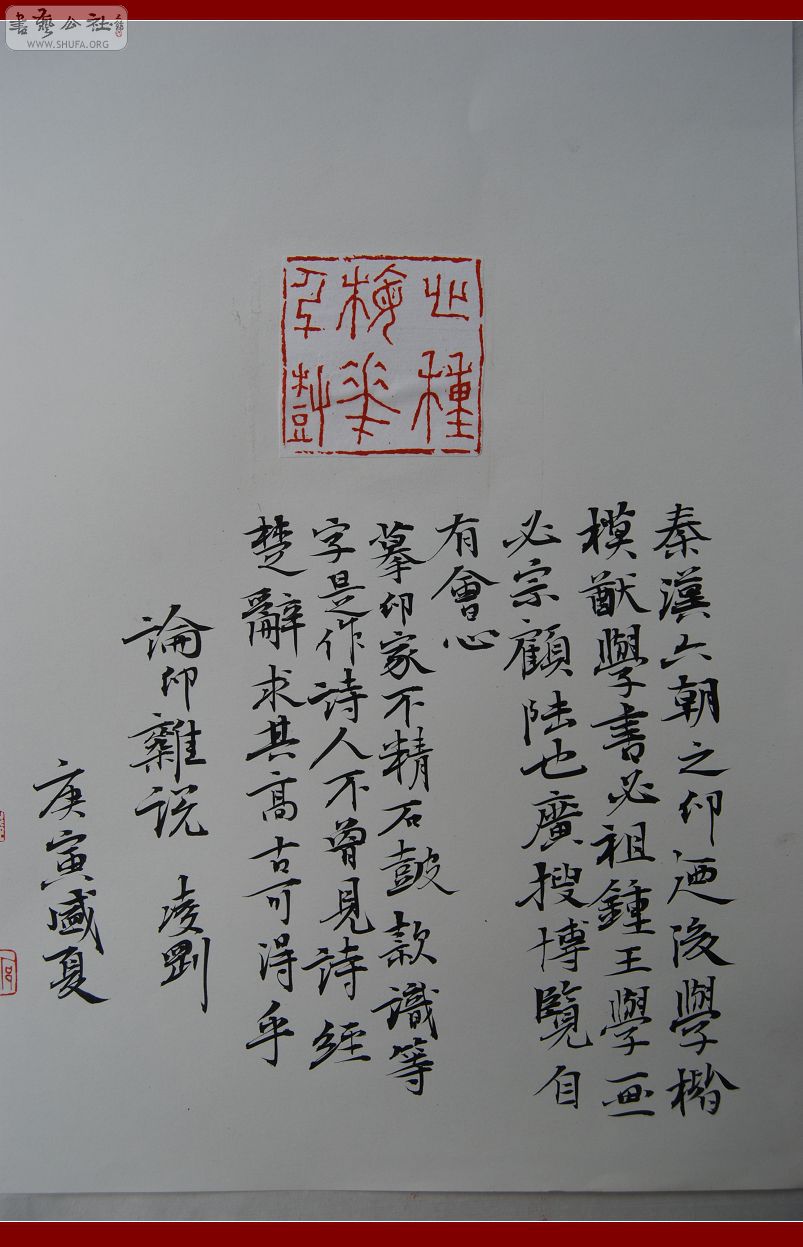 書藝公社
WWW.SHUFA.ORG
種
梅華
樹
秦漢六朝之印迺後學楷
模猷學書必祖鍾王學畫
必宗顧陸也廣搜博覽自
有會心
摹印家不精石鼓款識等
字是作詩人不曾見詩經
楚辭求其高古可得乎
論印雜説 凌剛
庚寅盛夏